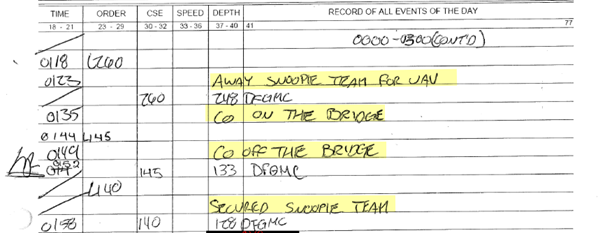 TIME ORDER CSE SPEED DEPTH RECORD OF ALL EVENTS OF THE DAY
18 - 21 23 - 29 30 - 32 33 - 36 37 - 40 41 77
0000-0300(CONT'D)
0118 L260
0123 AWAY SNOOPIE TEAM FOR UAV
260 248 DFGMC
0135 CO ON THE BRIDGE
0144 L145
0149 CO OFF THE BRIDGE
0152 145 133 DFGMC
L140
SECURED SNOOPIE TEAM
0158 140 128 DFGMC